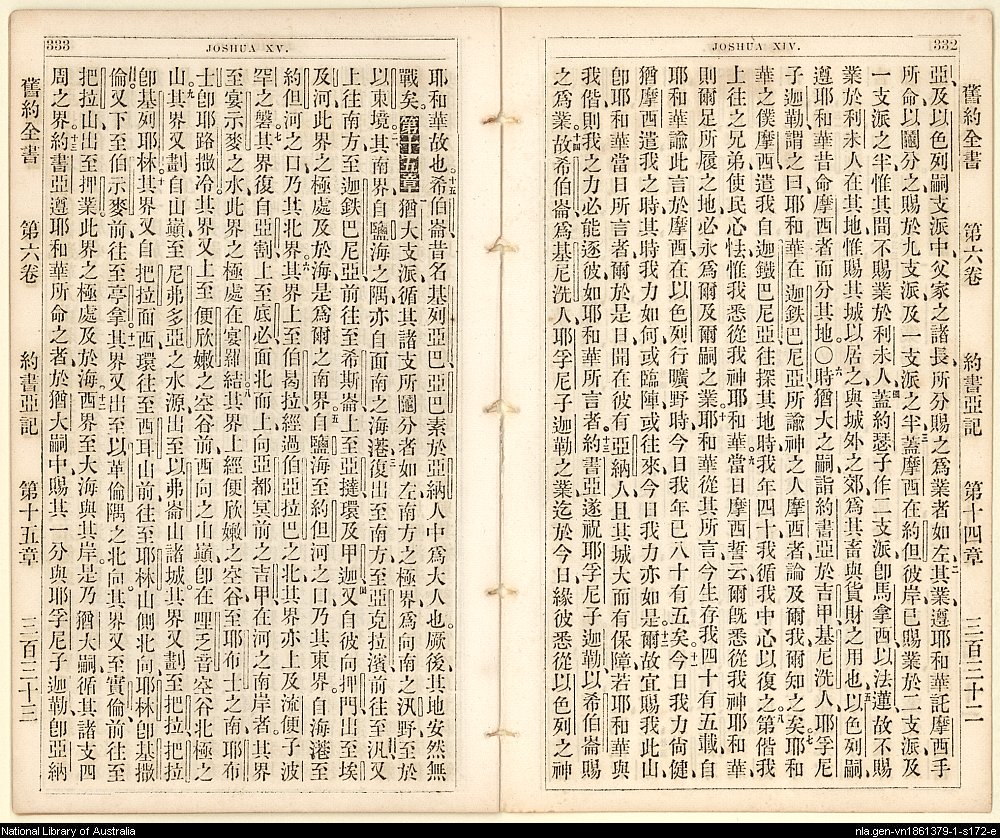 JOSHUA XIV. 332
舊約全書 第六卷 約書亞記 第十四章 三百三十二
亞及以色列嗣支派中、父家之諸長所分賜之爲業者如左、二其業遵耶和華託摩西手
所命、以鬮分之、賜於九支派及一支派之半、三蓋摩西在約但彼岸已賜業於二支派及
一支派之半、惟其間不賜業於利未人、四蓋約瑟子作二支派卽馬拿西、以法蓮、故不賜
業於利未人在其地、惟賜其城以居之、與城外之郊爲其畜與貨財之用也、五以色列嗣、
遵耶和華昔命摩西者而分其地。〇六時猶大之嗣詣約書亞於吉甲、基尼洗人、耶孚尼
子迦勒謂之曰、耶和華在迦鉄巴尼亞、所諭神之人摩西者、論及爾我、爾知之矣、七耶和
華之僕摩西、遣我自迦鐵巴尼亞往探其地時、我年四十、我循我中心以復之、八第偕我
上往之兄弟、使民心怯、惟我悉從我神耶和華、九當日摩西誓云、爾旣悉從我神耶和華、
則爾足所履之地、必永爲爾及爾嗣之業、十耶和華從其所言、今生存我四十有五載、自
耶和華諭此言於摩西、在以色列行曠野時、今日我年已八十有五矣、十一今日我力尙健、
猶摩西遣我之時、其時我力如何、或臨陣、或往來、今日我力亦如是、十二爾故宜賜我此山、
卽耶和華當日所言者、爾於是日聞在彼有亞納人、且其城大而有保障、若耶和華與
我偕則我之力必能逐彼、如耶和華所言者、十三約書亞遂祝耶孚尼子迦勒、以希伯崙賜
之爲業、十四故希伯崙爲基尼洗人耶孚尼子迦勒之業、迄於今日、緣彼悉從以色列之神
333 JOSHUA XV.
耶和華故也、十五希伯崙昔名基列亞巴、亞巴素於亞納人中爲大人也。厥後其地安然無
戰矣。
第十五章
一猶大支派循其諸支所鬮分者如左、南方之極界爲向南之汛野、至於
以東境、二其南界自鹽海之隅、亦自面南之海港、三復出至南方、至亞克拉濱、前往至汛、又
上往南方至迦鉄巴尼亞、前往至希斯崙、上至亞撻、環及甲迦、四又自彼向押門、出至埃
及河、此界之極處及於海、是爲爾之南界、五自鹽海至約但河之口、乃其東界。自海港至
約但河之口、乃其北界、六其界上至伯曷拉、經過伯亞拉巴之北、其界亦上及流便子波
罕之磐、七其界復自亞割上至底必、面北而上、向亞都冥前之吉甲、在河之南岸者。其界
至宴示麥之水、此界之極處在宴羅結、八其界上經便欣嫩之空谷、至耶布士之南、耶布
士卽耶路撒冷、其界又上至便欣嫩之空谷前西向之山巓、卽在哩乏音空谷北極之
山、九其界又劃自山巓至尼弗多亞之水源、出至以弗崙山諸城。其界又劃至把拉、把拉
卽基列耶林、十其界又自把拉面西環往至西耳山、前往至耶林山側北向、耶林卽基撒
倫、又下至伯示麥、前往至亭拿、十一其界又出至以革倫隅之北向。其界又至實倫、前往至
把拉山、出至押業、此界之極處及於海、十二西界至大海與其岸。是乃猶大嗣循其諸支四
周之界、十三約書亞遵耶和華所命之者、於猶大嗣中賜其一分與耶孚尼子迦勒、卽亞納
舊約全書 第六卷 約書亞記 第十五章 三百三十三
National Library of Australia
nla.gen-vn1861379-1-s172-e